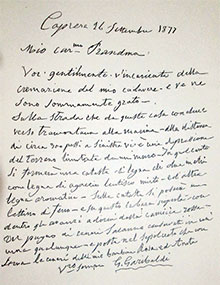 Caprera 26 Settembre 1877
Mio car.mo Prandina.
Voi gentilmente v'incaricate della
cremazione del mio cadavere e ve ne
sono sommamente grato.
Sulla strada che da questa casa conduce
verso tramontana alla marina - alla distanza
di circa 300 passi a sinistra vi è una depressione
del terreno limitata da un muro. In quel canto
si formerà una catasta di legna di due metri
con legna di acacia, lentisco, mirto ed altre
legna aromatiche. Sulla catasta si poserà un
lettino di ferro e su questo la bara scoperta con
dentro gli avanzi adorni della camicia rossa.
Un pugno di cenere sarà conservato in un'
urna qualunque e posta nel sepolcreto che con-
serva le ceneri delle mie bambine Rosa ed Anita
Vro sempre G. Garibaldi